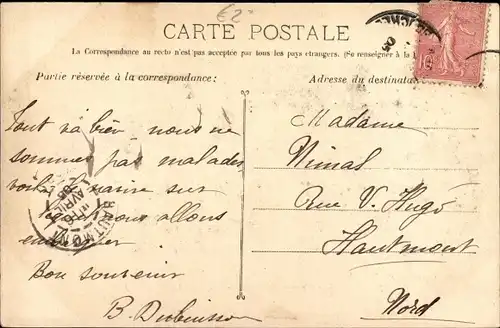 62-
CARTE POSTALE
La Correspondance au recto n'est pas acceptée par tous les pays étrangers. (Se renseigner à la
Partie réservée à la correspondance:
Adresse du destinata
Tout va bien nous ne
sommes pas malades
voilà sur
nous allons
Bon souvenir
B. Dubuisson
Madame
Nimal
Rue V. Hugo
Hautmont
Nord
HAUTMONT
AVRIL
05